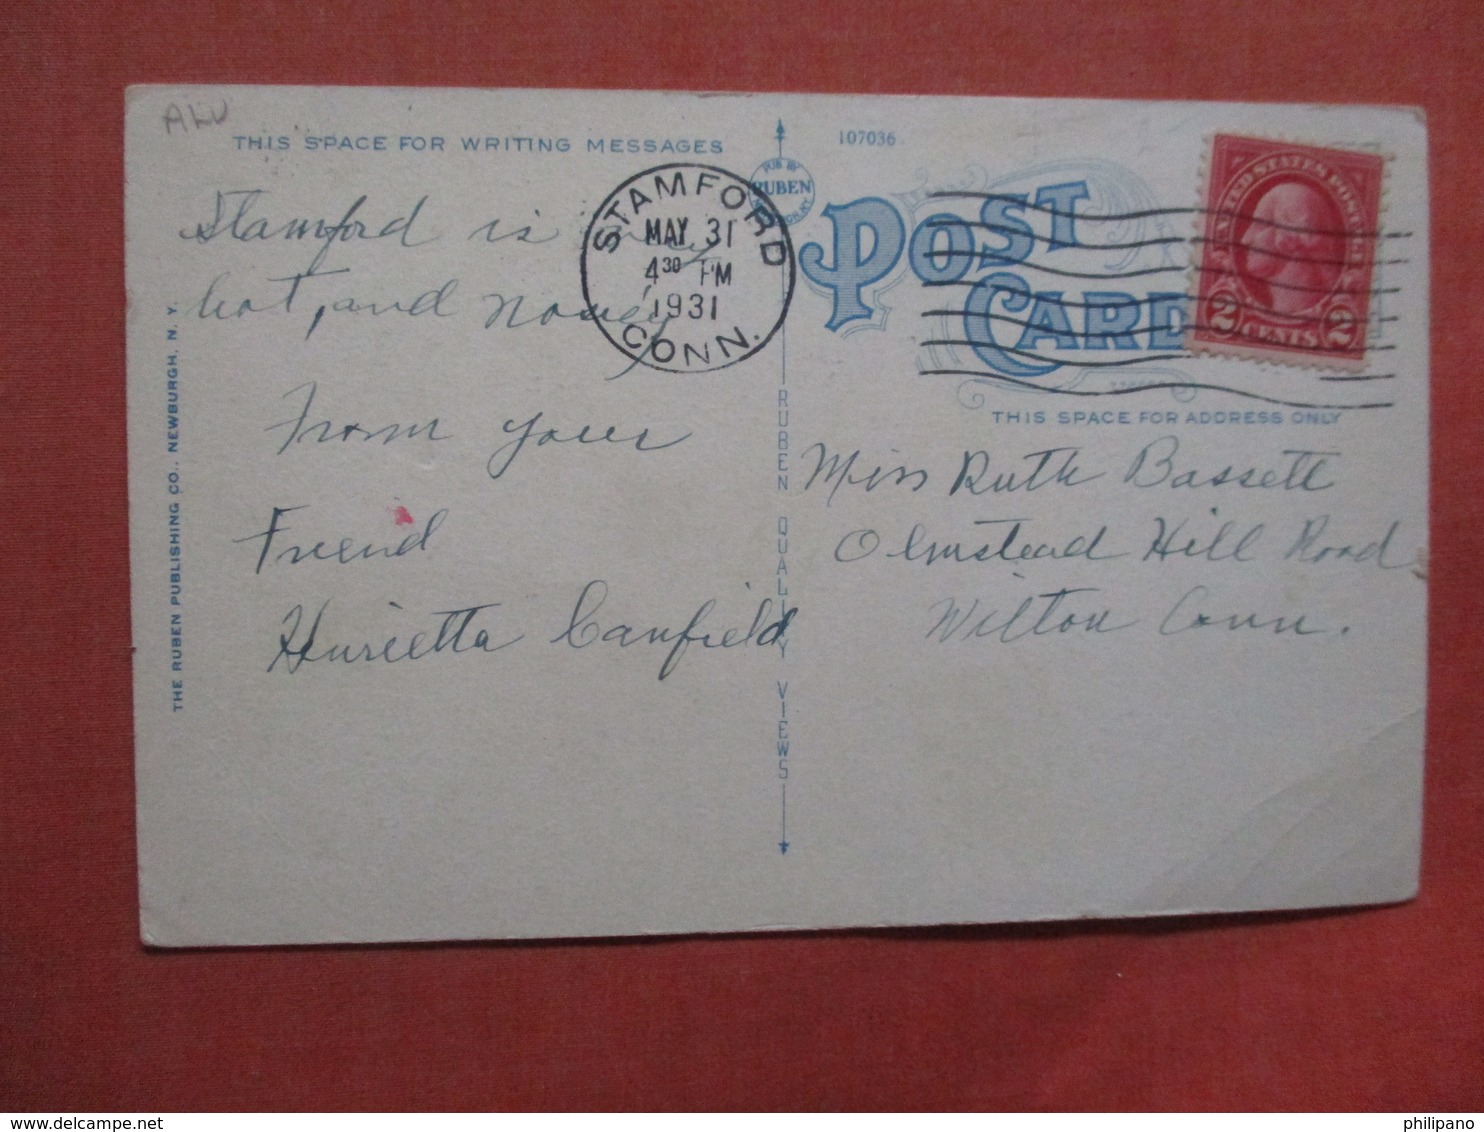 ALU
THIS SPACE FOR WRITING MESSAGES
Stamford is
hot, and
From your
Friend
Hurietta Canfield
THE RUBEN PUBLISHING CO., NEWBURGH, N. Y.
STAMFORD
MAY 31
4 30 PM
1931
CONN.
PUB. BY
RUBEN
RUBEN QUALITY VIEWS
107036
POST
CARD
UNITED STATES POSTAGE
2 CENTS 2
THIS SPACE FOR ADDRESS ONLY
Miss Ruth Bassett
Olmstead Hill Road
Wilton Conn.
philipano
www.delcampe.net